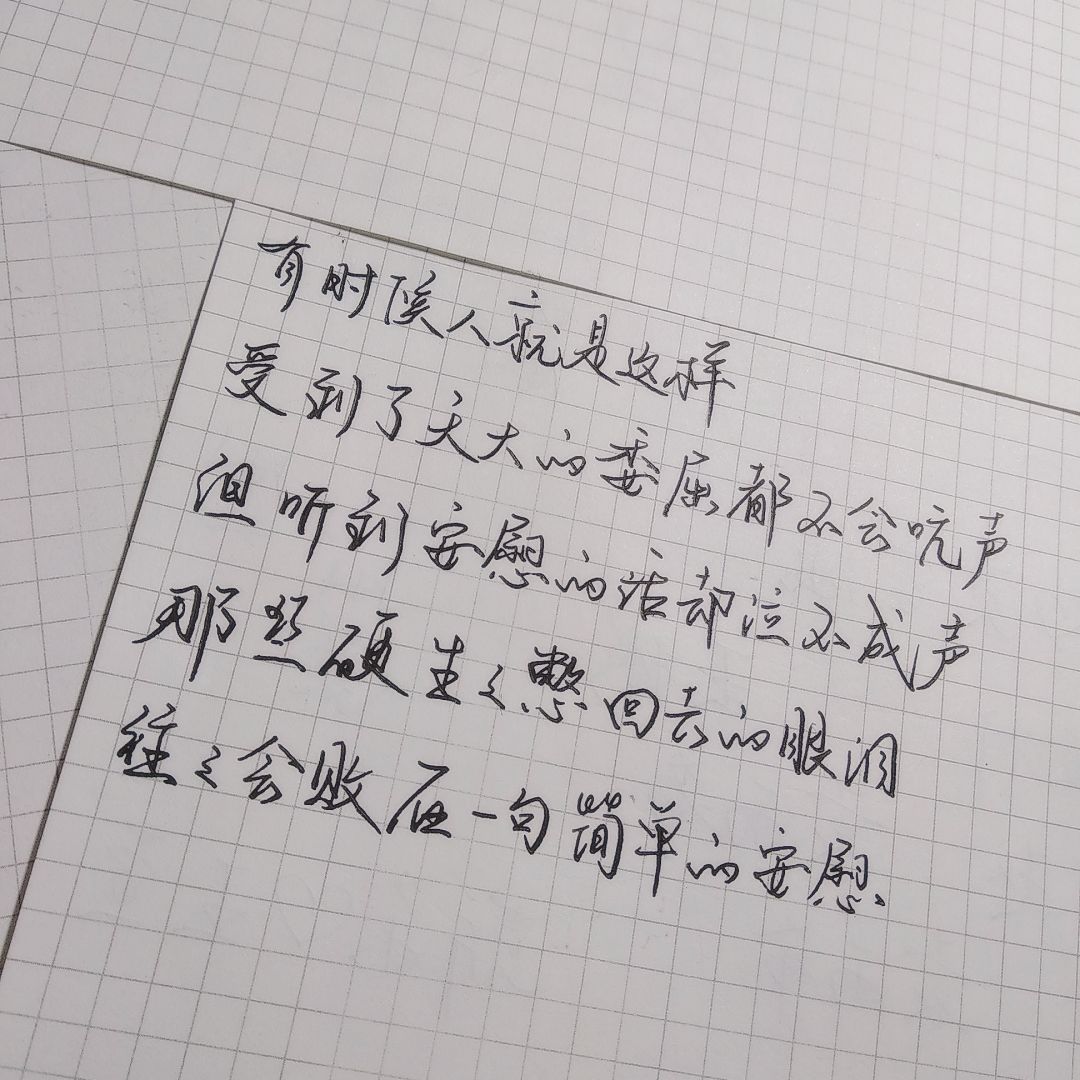 有时候人就是这样
受到了天大的委屈都不会吭声
但听到安慰的话却泣不成声
那些硬生生憋回去的眼泪
往往会败在一句简单的安慰